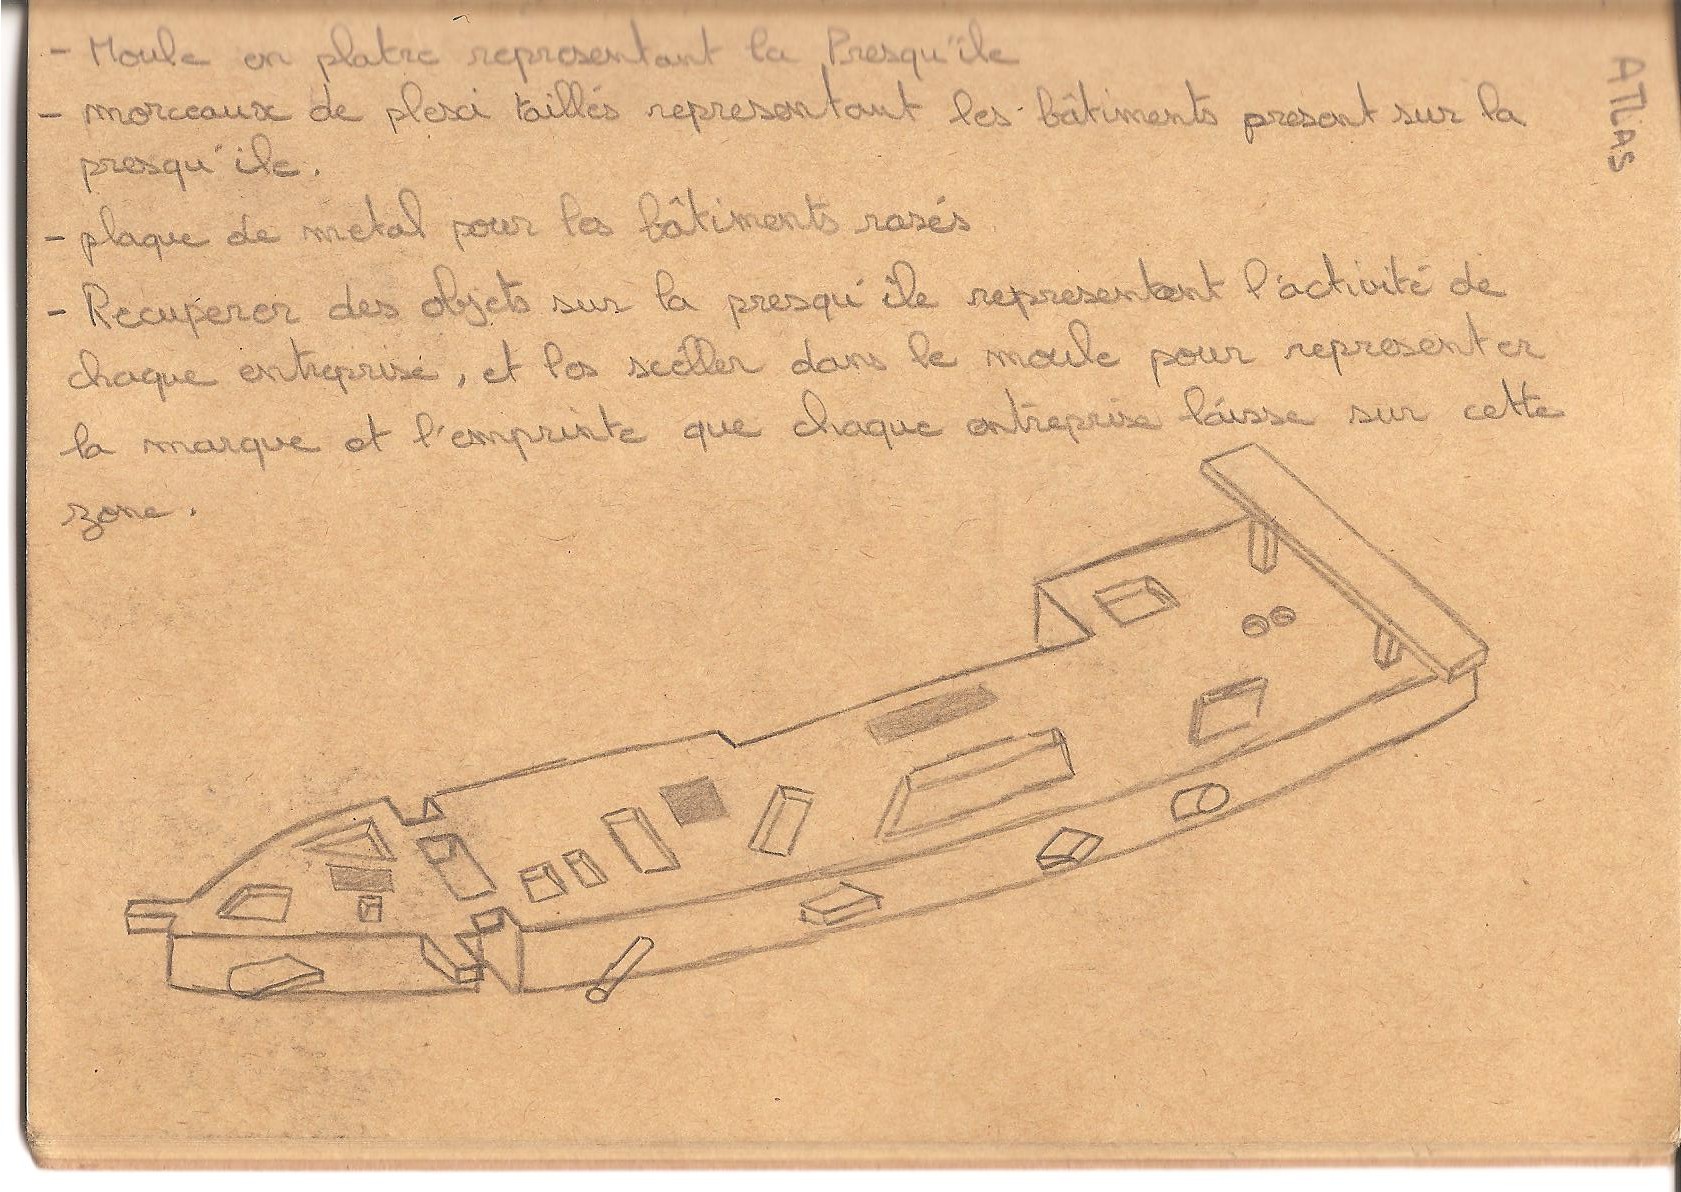 - Moule en platre representant la Presqu'ile
- morceaux de plexi taillés representant les bâtiments present sur la
presqu'ile.
- plaque de metal pour les bâtiments rasés
- Recuperer des objets sur la presqu'île representant l'activité de
chaque entreprise, et les scéller dans le moule pour representer
la marque et l'emprinte que chaque entreprise laisse sur cette
zone.
ATLAS